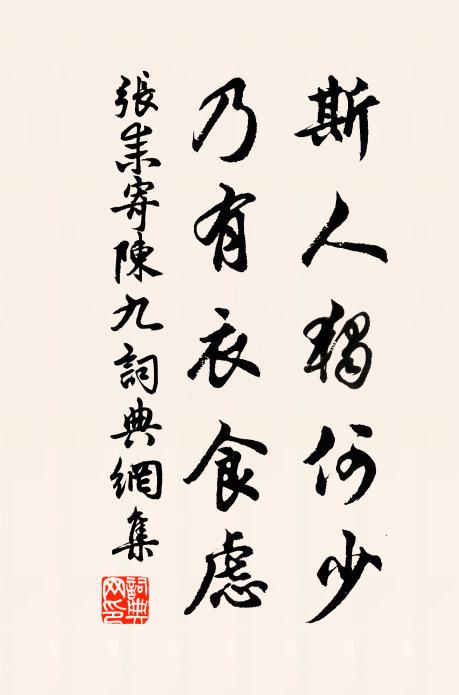 斯人獨何少
乃有衣食慮
張耒寄陳九詞典網集
詞典网印